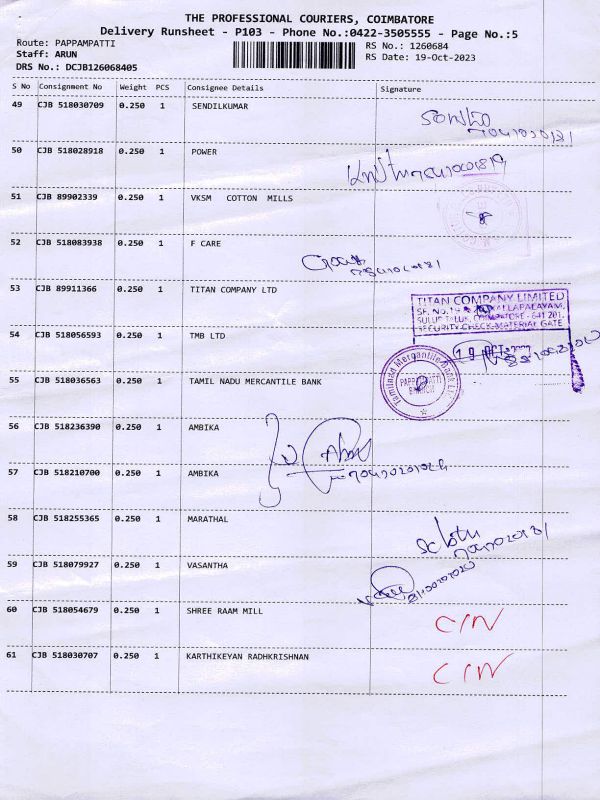 THE PROFESSIONAL COURIERS, COIMBATORE
Delivery Runsheet - P103 - Phone No.:0422-3505555 - Page No.:5
Route: PAPPAMPATTI
RS No.: 1260684
Staff: ARUN
RS Date: 19-Oct-2023
DRS No.: DCJB126068405
S No Consignment No Weight PCS Consignee Details Signature
49 CJB 518030709 0.250 1 SENDILKUMAR
50 CJB 518028918 0.250 1 POWER
51 CJB 89902339 0.250 1 VKSM COTTON MILLS
52 CJB 518083938 0.250 1 F CARE
53 CJB 89911366 0.250 1 TITAN COMPANY LTD
TITAN COMPANY LIMITED
SECURITY CHECK-MATERIAL GATE
54 CJB 518056593 0.250 1 TMB LTD
Tamilnad Mercantile Bank Ltd
PAPPAMPATTI
BRANCH
55 CJB 518036563 0.250 1 TAMIL NADU MERCANTILE BANK
56 CJB 518236390 0.250 1 AMBIKA
57 CJB 518210700 0.250 1 AMBIKA
58 CJB 518255365 0.250 1 MARATHAL
59 CJB 518079927 0.250 1 VASANTHA
60 CJB 518054679 0.250 1 SHREE RAAM MILL
CIN
61 CJB 518030707 0.250 1 KARTHIKEYAN RADHKRISHNAN
CIN